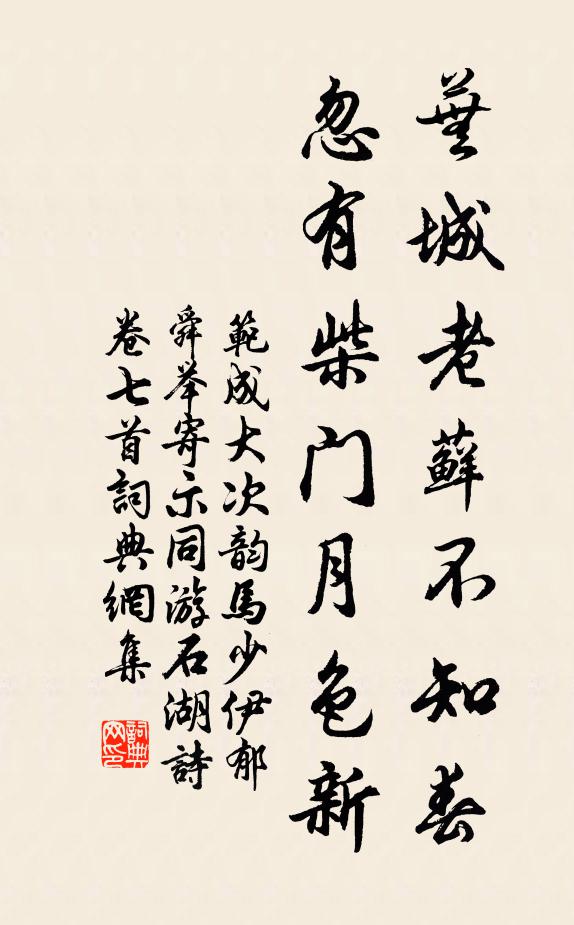 蕪城老蘚不知春
忽有柴门月色新
範成大次韵馬少伊郁
舜举寄示同游石湖詩
卷七首詞典網集
詞典网印